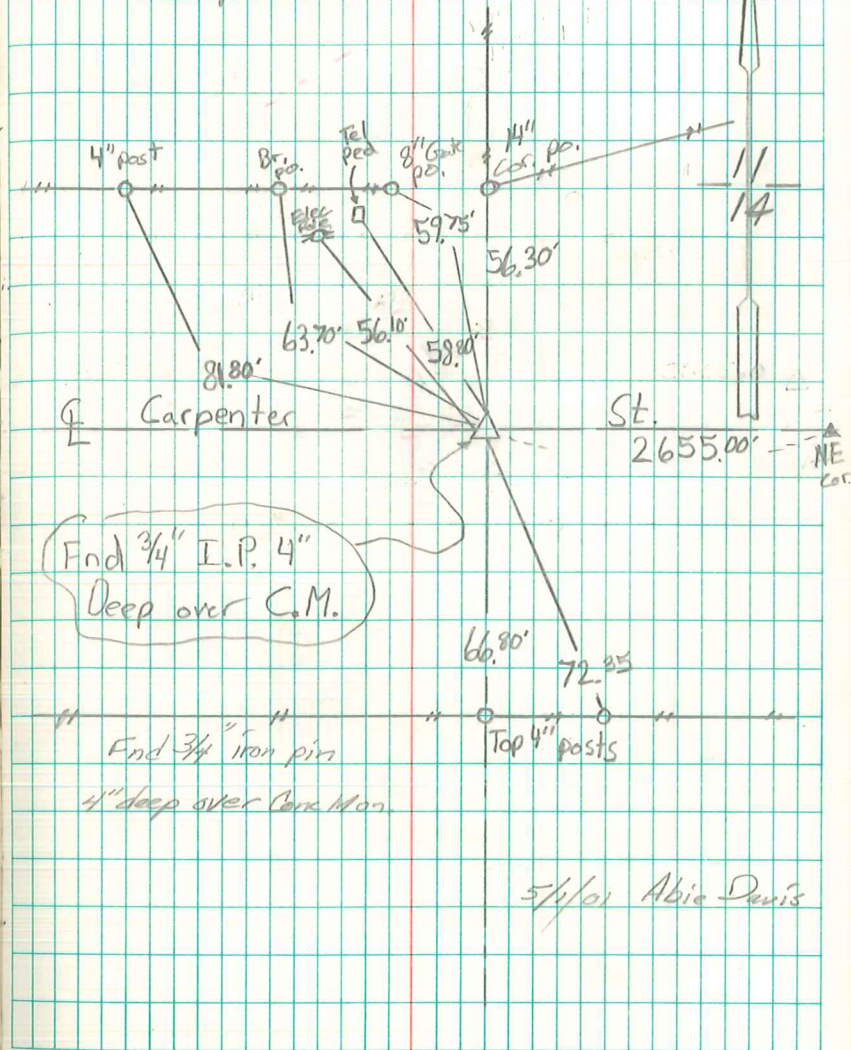 4" post
Br. po.
Tel
ped
8" Gate
po.
14"
Cor. po.
Elec
Pole
11
14
59.75'
56.30'
63.70'
56.10'
58.80'
81.80'
℄ Carpenter St.
2655.00'
NE
cor.
Fnd 3/4" I.P. 4"
Deep over C.M.
66.80'
72.35
Top 4" posts
Fnd 3/4" iron pin
4" deep over Conc Mon.
5/1/01 Abie Davis